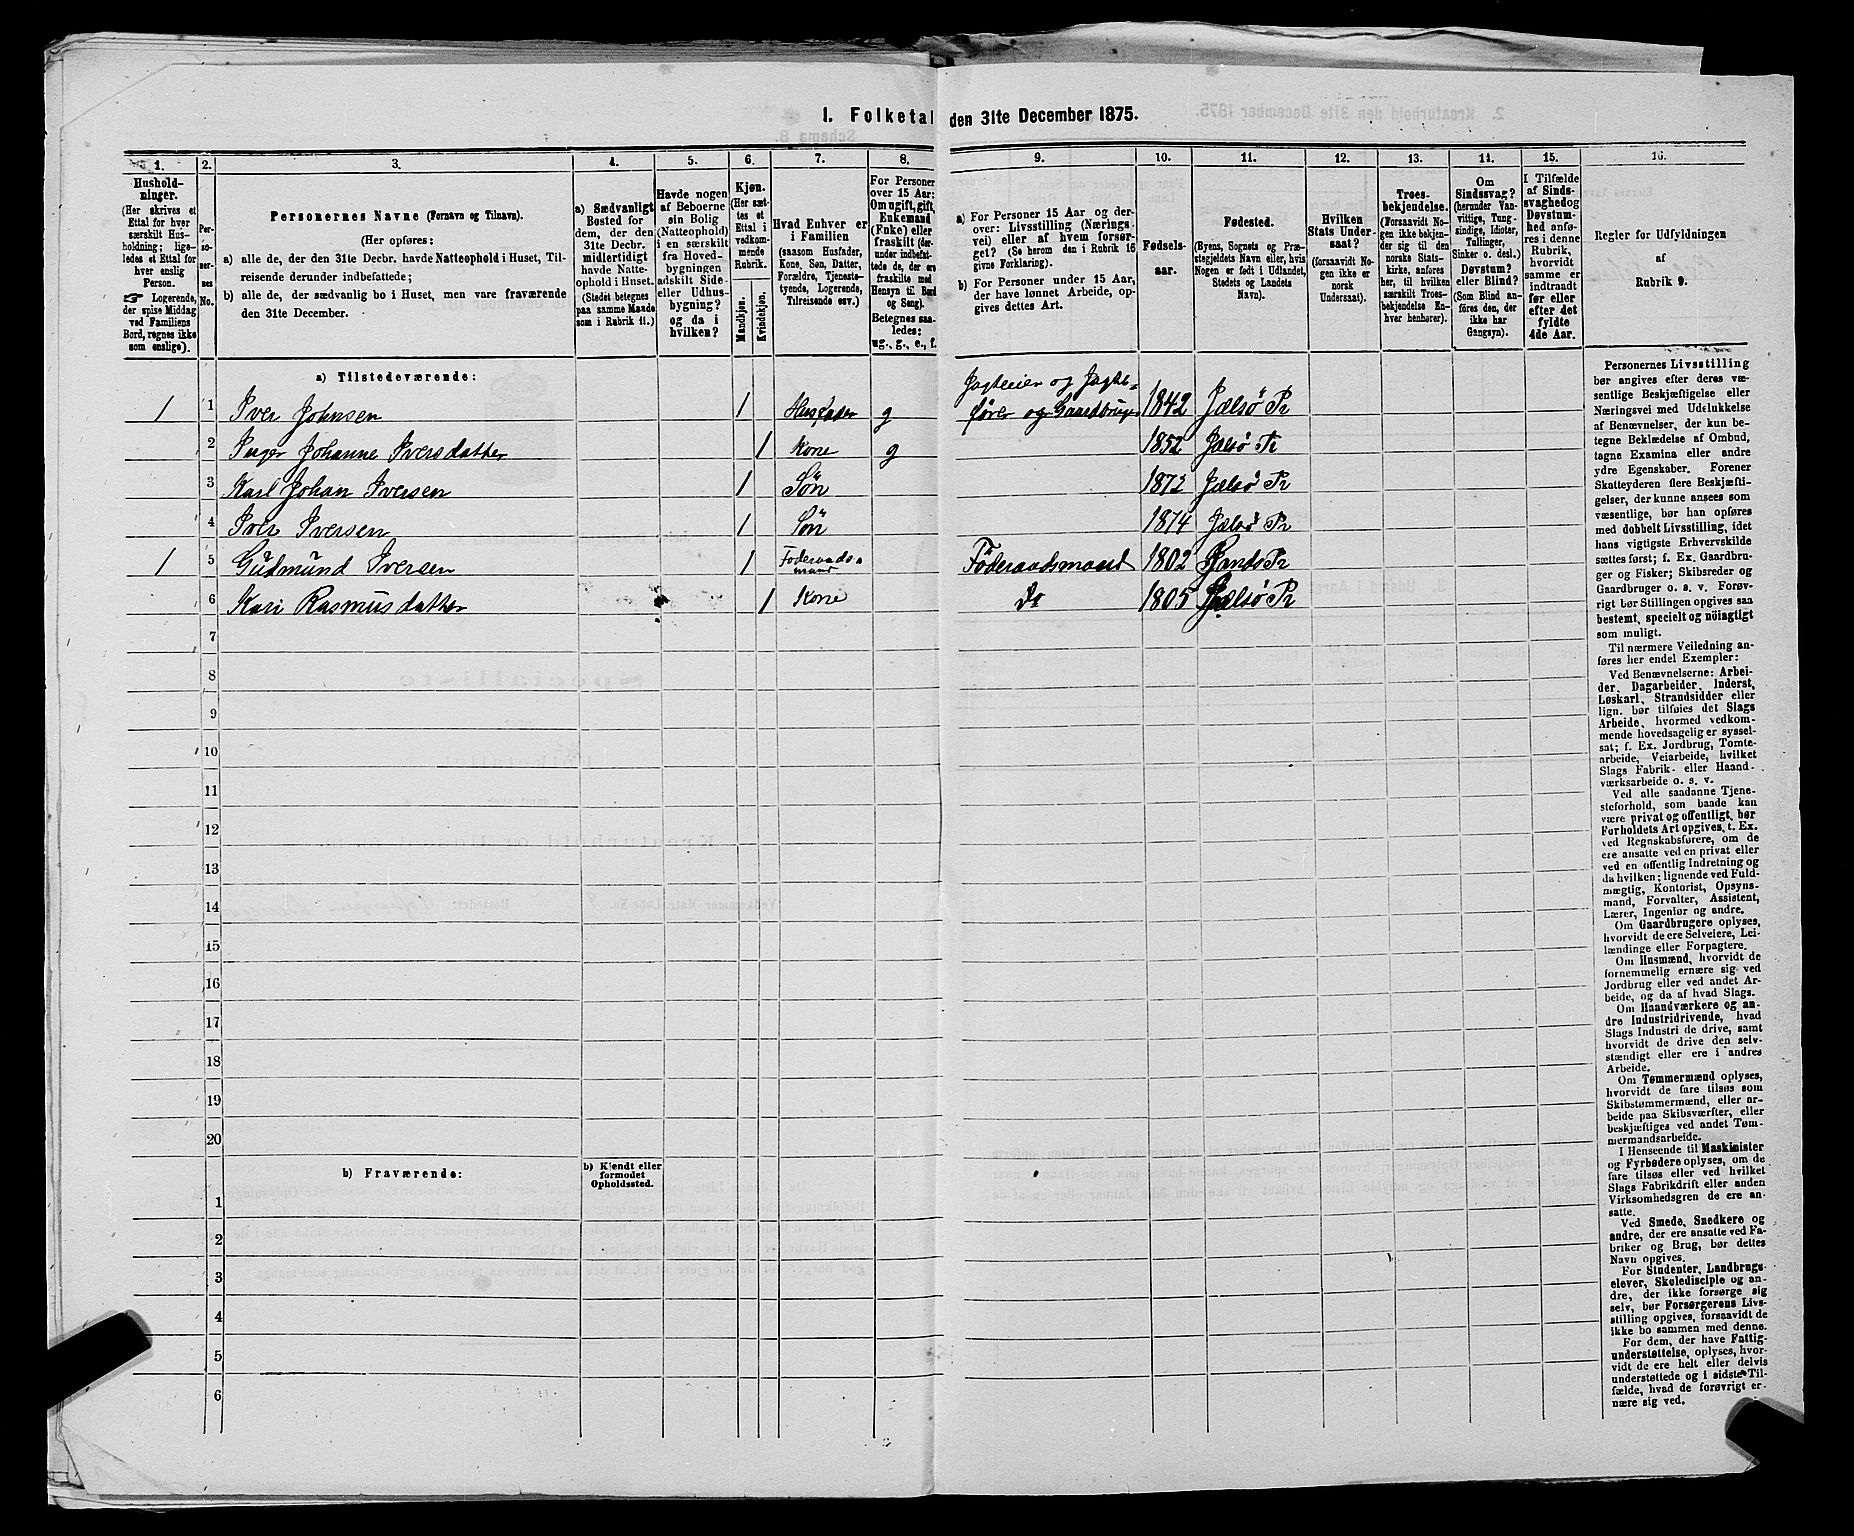 1. Folketal den 31te December 1875.
1. 2. 3. 4. 5. 6. 7. 8. 9. 10. 11. 12. 13. 14. 15. 16.
Hushold-
ninger.
(Her skrives et
Ettal for hver
særskilt Hus-
holdning; lige-
ledes et Ettal for
hver enslig
Person.
☞ Logerende,
der spise Middag
ved Familiens
Bord, regnes ikke
som enslige).
Per-
so-
ner-
nes
No.
Personernes Navne (Fornavn og Tilnavn).
(Her opføres:
a) alle de, der den 31te Decbr. havde Natteophold i Huset, Til-
reisende derunder indbefattede;
b) alle de, der sædvanlig bo i Huset, men vare fraværende
den 31te December.
a) Sædvanligt
Bosted for
dem, der den
31te Decbr.
midlertidigt
havde Natte-
ophold i Huset.
(Stedet betegnes
paa samme Maade
som i Rubrik 11.)
Havde nogen
af Beboerne
sin Bolig
(Natteophold)
i en særskilt
fra Hoved-
bygningen
adskilt Side-
eller Udhus-
bygning?
og da i
hvilken?
Kjøn.
(Her sæt-
tes et
Ettal i
vedkom-
mende
Rubrik.
Mandkjøn.
Kvindekjøn.
Hvad Enhver er
i Familien
(saasom Husfader,
Kone, Søn, Datter,
Forældre, Tjeneste-
tyende, Logerende,
Tilreisende osv.)
For Personer
over 15 Aar:
Om ugift, gift,
Enkemand
(Enke) eller
fraskilt (der-
under indbefat-
tede de, der ere
fraskilte med
Hensyn til Bord
og Seng).
Betegnes saa-
ledes:
ug., g., e., f.
a) For Personer 15 Aar og der-
over: Livsstilling (Nærings-
vei) eller af hvem forsør-
get? (Se herom den i Rubrik 16
givne Forklaring).
b) For Personer under 15 Aar,
der have lønnet Arbeide, op-
gives dettes Art.
Fødsels-
aar.
Fødested.
(Byens, Sognets og Præ-
stegjeldets Navn eller, hvis
Nogen er født i Udlandet,
Stedets og Landets
Navn).
Hvilken
Stats Under-
saat?
(forsaavidt No-
gen ikke er
norsk
Undersaat).
Troes-
bekjendelse.
(Forsaavidt No-
gen ikke bekjen-
der sig til den
norske Stats-
kirke, anføres
her, til hvilken
særskilt Troes-
bekjendelse En-
hver henhører).
Om
Sindssvag?
(herunder Van-
vittige, Tung-
sindige, Idioter,
Tullinger,
Sinker o. desl.)
Døvstum?
eller Blind?
(Som Blind an-
føres den, der
ikke har
Gangsyn).
I Tilfælde
af Sinds-
svaghed og
Døvstum-
hed anfø-
res i denne
Rubrik,
hvorvidt
samme er
indtraadt
før eller
efter det
fyldte
4de Aar.
Regler for Udfyldningen
af
Rubrik 9.
a) Tilstedeværende:
Jagteeier og Jagte-
1 1 Iver Johnsen 1 Husfader g fører og Gaardbruger 1842 Jælsø Pr
2 Inger Johanne Iversdatter 1 Kone g 1852 Jælsø Pr
3 Karl Johan Iversen 1 Søn 1872 Jælsø Pr
4 Iver Iversen 1 Søn 1874 Jælsø Pr
1 5 Gudmund Iversen 1 Føderaads- Føderaadsmand 1802 Sands Pr
mand
6 Kari Rasmusdatter 1 Kone Do 1805 Jælsø Pr
7
8
9
10
11
12
13
14
15
16
17
18
19
20
b) Fraværende:
b) Kjendt eller
formodet
Opholdssted.
1
2
3
4
5
6
Personernes Livsstilling
bør angives efter deres væ-
sentlige Beskjæftigelse eller
Næringsvei med Udelukkelse
af Benævnelser, der kun be-
tegne Beklædelse af Ombud,
tagne Examina eller andre
ydre Egenskaber. Forener
Skatteyderen flere Beskjæfti-
gelser, der kunne ansees som
væsentlige, bør han opføres
med dobbelt Livsstilling, idet
hans vigtigste Erhvervskilde
sættes først; f. Ex. Gaardbru-
ger og Fisker; Skibsreder og
Gaardbruger o. s. v. Forøv-
rigt bør Stillingen opgives saa
bestemt, specielt og nöiagtigt
som muligt.
Til nærmere Veiledning an-
føres her endel Exempler:
Ved Benævnelserne: Arbei-
der, Dagarbeider, Inderst,
Løskarl, Strandsidder eller
lign. bør tilføies det Slags
Arbeide, hvormed vedkom-
mende hovedsagelig er syssel-
sat; f. Ex. Jordbrug, Tomte-
arbeide, Veiarbeide, hvilket
Slags Fabrik- eller Haand-
værksarbeide o. s. v.
Ved alle saadanne Tjene-
steforhold, som baade kan
være privat og offentligt, bør
Forholdets Art opgives, t. Ex.
ved Regnskabsførere, om de
ere ansatte ved en privat eller
ved en offentlig Indretning og
da hvilken; lignende ved Fuld-
mægtig, Kontorist, Opsyns-
mand, Forvalter, Assistent,
Lærer, Ingeniør og andre.
Om Gaardbrugere oplyses,
hvorvidt de ere Selveiere, Lei-
lændinge eller Forpagtere.
Om Husmænd, hvorvidt de
fornemmelig ernære sig ved
Jordbrug eller ved andet Ar-
beide, og da af hvad Slags.
Om Haandværkere og an-
dre Industridrivende, hvad
Slags Industri de drive, samt
hvorvidt de drive den selv-
stændigt eller ere i andres
Arbeide.
Om Tømmermænd oplyses,
hvorvidt de fare tilsøs som
Skibstømmermænd, eller ar-
beide paa Skibsværfter, eller
beskjæftiges ved andet Tøm-
mermandsarbeide.
I Henseende til Maskinister
og Fyrbødere oplyses, om de
fare tilsøs eller ved hvilket
Slags Fabrikdrift eller anden
Virksomhedsgren de ere an-
satte.
Ved Smede, Snedkere og
andre, der ere ansatte ved Fa-
briker og Brug, bør dettes
Navn opgives.
For Studenter, Landbrugs-
elever, Skoledisciple og an-
dre, der ikke forsørge sig
selv, bør Forsørgerens Livs-
stilling opgives, forsaavidt de
ikke bo sammen med denne.
For dem, der have Fattig-
understøttelse, oplyses, hvor-
vidt de ere helt eller delvis
understøttede og i sidste Til-
fælde, hvad de forøvrigt er-
nære sig ved.